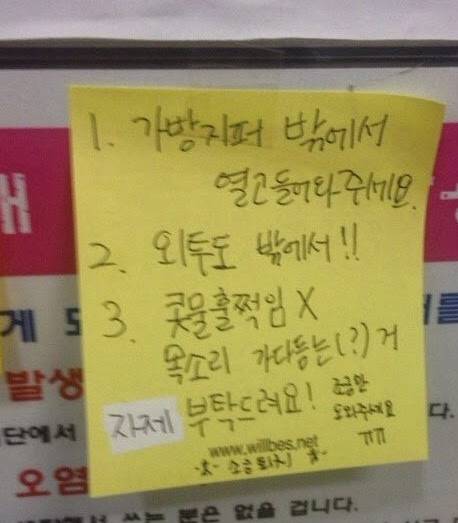 1. 가방지퍼 밖에서
열고들어와주세요.
2. 외투도 밖에서!!
3. 콧물훌쩍임 X
목소리 가다듬는(?) 거
자제 부탁드려요! 조금만
도와주세요
ㅠㅠ
www.willbes.net
소음퇴치
게
발생
단에서
다.
오염
쓰는 분은 없을 겁니다.